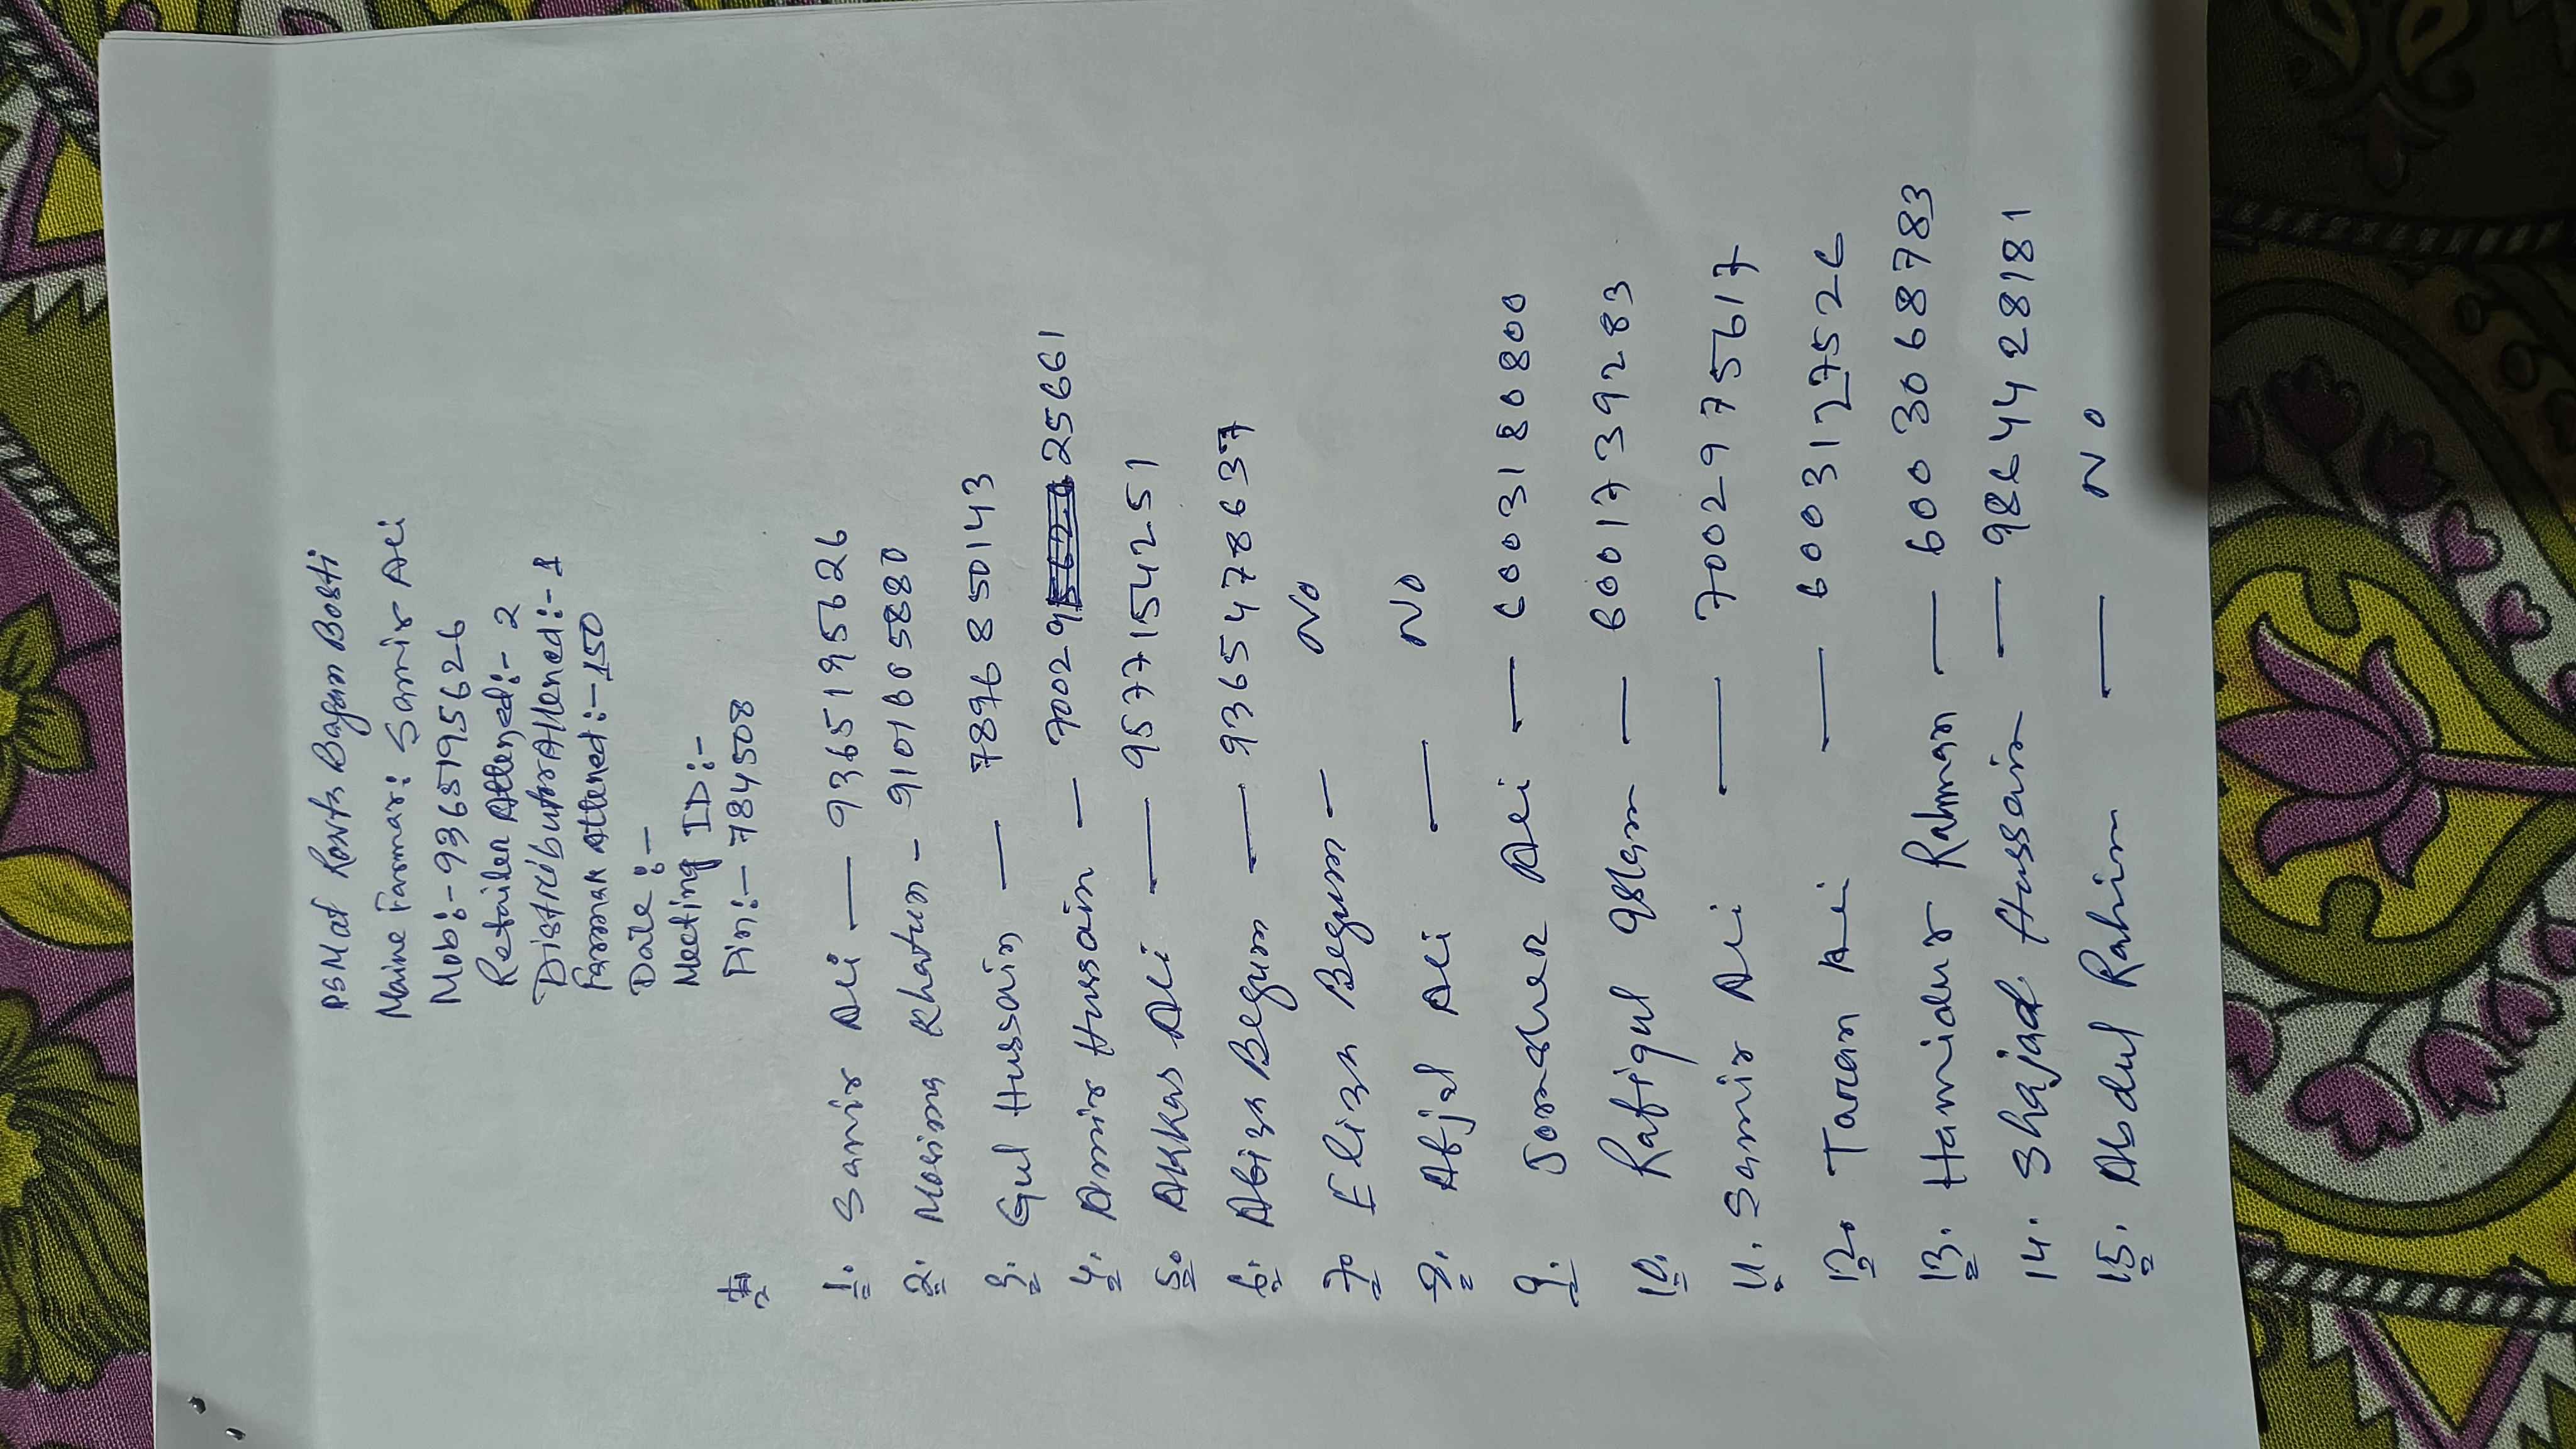 PSM at Rowta Bagan Basti
Maine Farmar: Samir Ali
Mob:- 9365195626
Retailer Attened:- 2
Distributor Attened:- 1
Farmar Attened:- 150
Date:-
Meeting ID:-
Pin:- 784508
#
1. Samir Ali — 9365195626
2. Mosima Khatun - 9101605880
3. Gul Hussain — 7896850143
4. Amir Hussain — 7002925661
5. Akkas Ali — 9577154251
6. Abiza Begum — 9365478637
7. Eliza Begum - No
8. Abjal Ali — No
9. Jomsher Ali — 6003180800
10. Rafiqul Islam — 6001739283
11. Samir Ali — 7002975617
12. Taran Ali — 6003127526
13. Hamidur Rahman — 6003068783
14. Shajad Hussain — 9864428181
15. Abdul Rahim — No